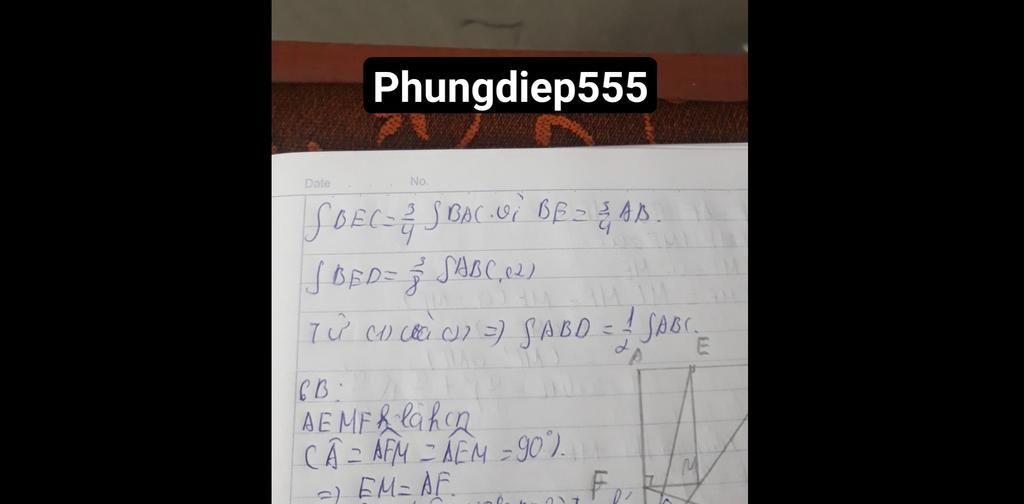 Phungdiep555
Date No.
SBEC = 3/4 SBAC. vì BE = 3/4 AB.
SBED = 3/8 SABC (2)
Từ (1) và (2) => SABD = 1/2 SABC.
A E
6B:
AEMF là hcn
(Â = AFM = AEM = 90°).
=> EM = AF.
F M